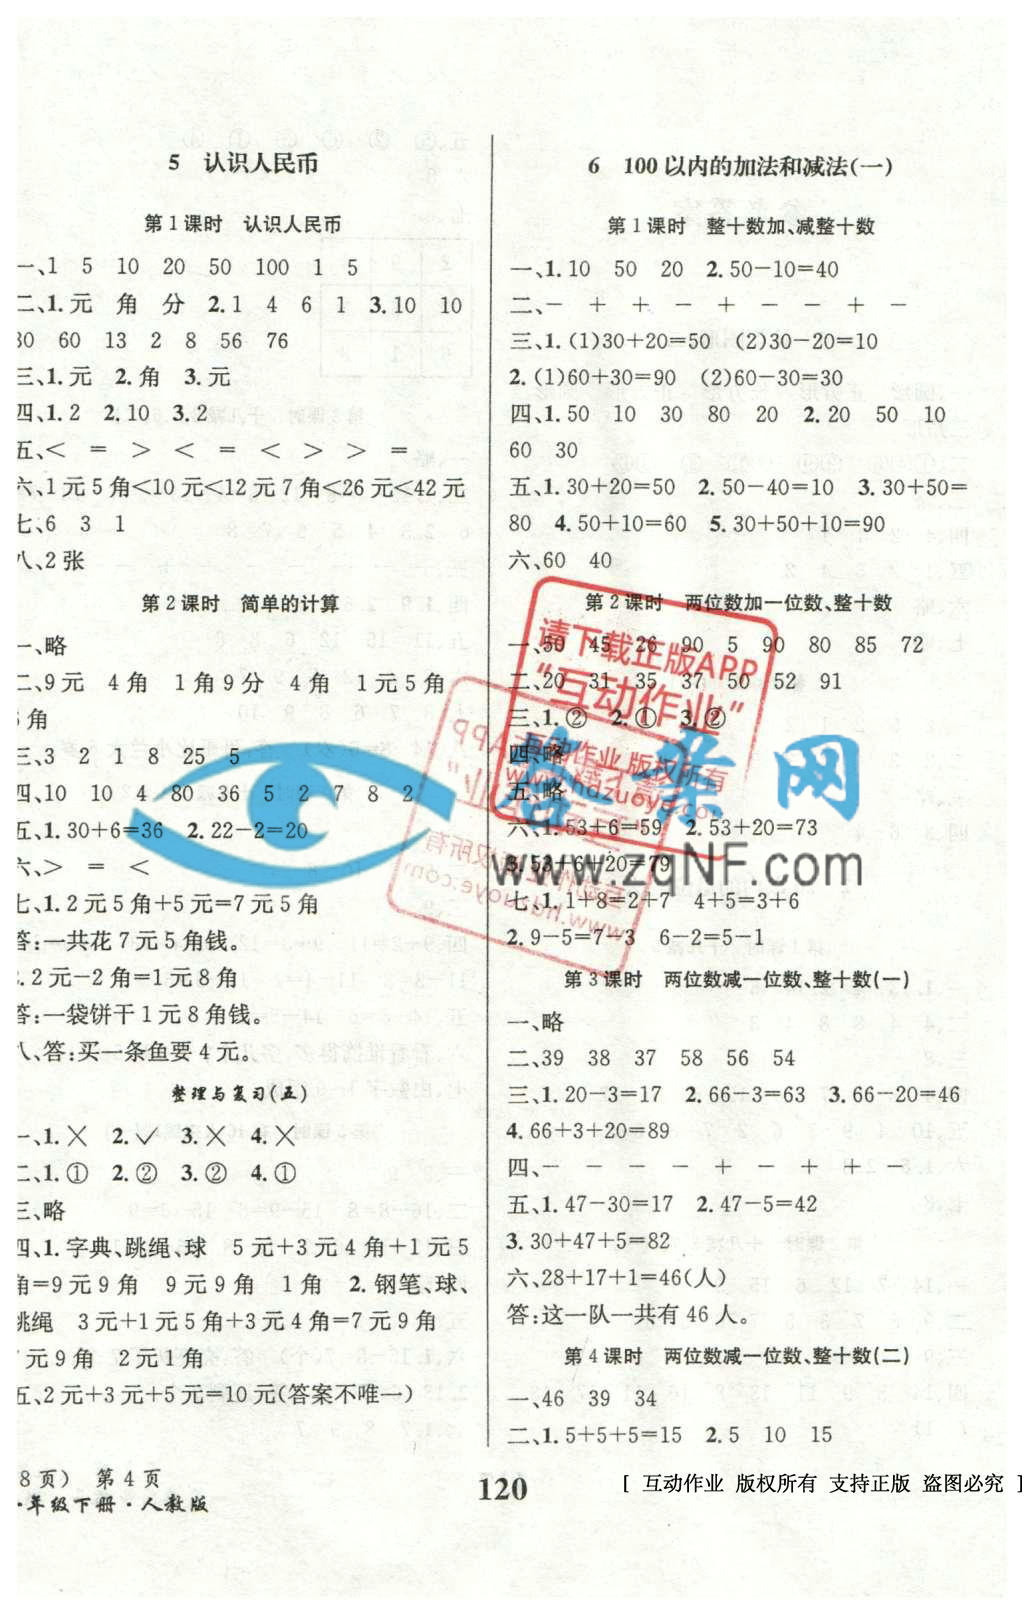 5 认识人民币
第1课时 认识人民币
一、1 5 10 20 50 100 1 5
二、1.元 角 分 2.1 4 6 1 3.10 10
80 60 13 2 8 56 76
三、1.元 2.角 3.元
四、1.2 2.10 3.2
五、< = > < = < > > =
六、1元5角<10元<12元7角<26元<42元
七、6 3 1
八、2张
第2课时 简单的计算
一、略
二、9元 4角 1角9分 4角 1元5角
角
三、3 2 1 8 25 5
四、10 10 4 80 36 5 2 7 8 2
五、1.30+6=36 2.22-2=20
六、> = <
七、1.2元5角+5元=7元5角
答:一共花7元5角钱。
2.2元-2角=1元8角
答:一袋饼干1元8角钱。
八、答:买一条鱼要4元。
整理与复习(五)
一、1.× 2.√ 3.× 4.×
二、1.① 2.② 3.② 4.①
三、略
四、1.字典、跳绳、球 5元+3元4角+1元5
角=9元9角 9元9角 1角 2.钢笔、球、
跳绳 3元+1元5角+3元4角=7元9角
7元9角 2元1角
五、2元+3元+5元=10元(答案不唯一)
8页) 第4页
·年级下册·人教版
6 100以内的加法和减法(一)
第1课时 整十数加、减整十数
一、1.10 50 20 2.50-10=40
二、- + + - + - - - + -
三、1.(1)30+20=50 (2)30-20=10
2.(1)60+30=90 (2)60-30=30
四、1.50 10 30 80 20 2.20 50 10
60 30
五、1.30+20=50 2.50-40=10 3.30+50=
80 4.50+10=60 5.30+50+10=90
六、60 40
第2课时 两位数加一位数、整十数
一、50 45 26 90 5 90 80 85 72
二、20 31 35 37 50 52 91
三、1.② 2.① 3.②
四、略
五、略
六、1.53+6=59 2.53+20=73
3.53+6+20=79
七、1.1+8=2+7 4+5=3+6
2.9-5=7-3 6-2=5-1
第3课时 两位数减一位数、整十数(一)
一、略
二、39 38 37 58 56 54
三、1.20-3=17 2.66-3=63 3.66-20=46
4.66+3+20=89
四、- - - - + - + + -
五、1.47-30=17 2.47-5=42
3.30+47+5=82
六、28+17+1=46(人)
答:这一队一共有46人。
第4课时 两位数减一位数、整十数(二)
一、46 39 34
二、1.5+5+5=15 2.5 10 15
120
[ 互动作业 版权所有 支持正版 盗图必究 ]
请下载正版APP
"互动作业"
互动作业 版权所有
www.hdzuoye.com
请下载正版APP
"互动作业"
互动作业 版权所有
www.hdzuoye.com
www.zqNF.com